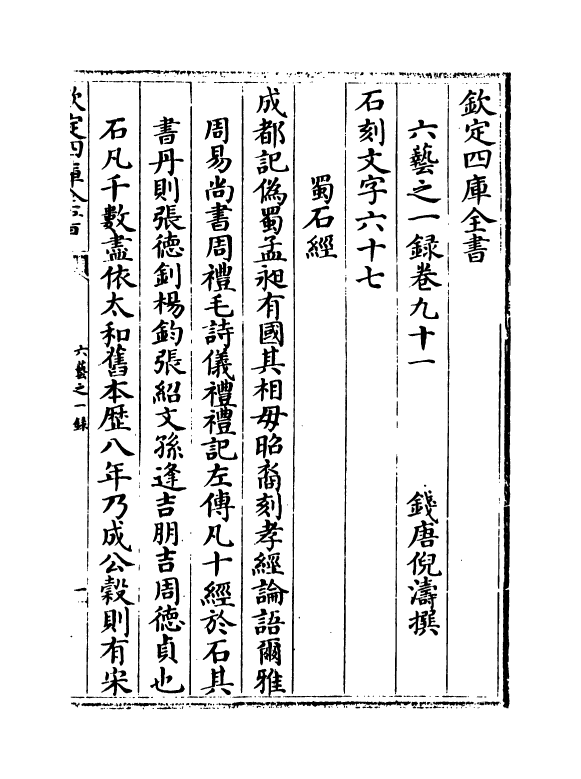 欽定四庫全書
六藝之一録卷九十一
錢唐倪濤撰
石刻文字六十七
蜀石經
成都記偽蜀孟昶有國其相毋昭裔刻孝經論語爾雅
周易尚書周禮毛詩儀禮禮記左傳凡十經於石其
書丹則張徳釗楊鈞張紹文孫逢吉朋吉周徳貞也
石凡千數盡依太和舊本歴八年乃成公榖則有宋
欽定四庫全書
六藝之一録
一